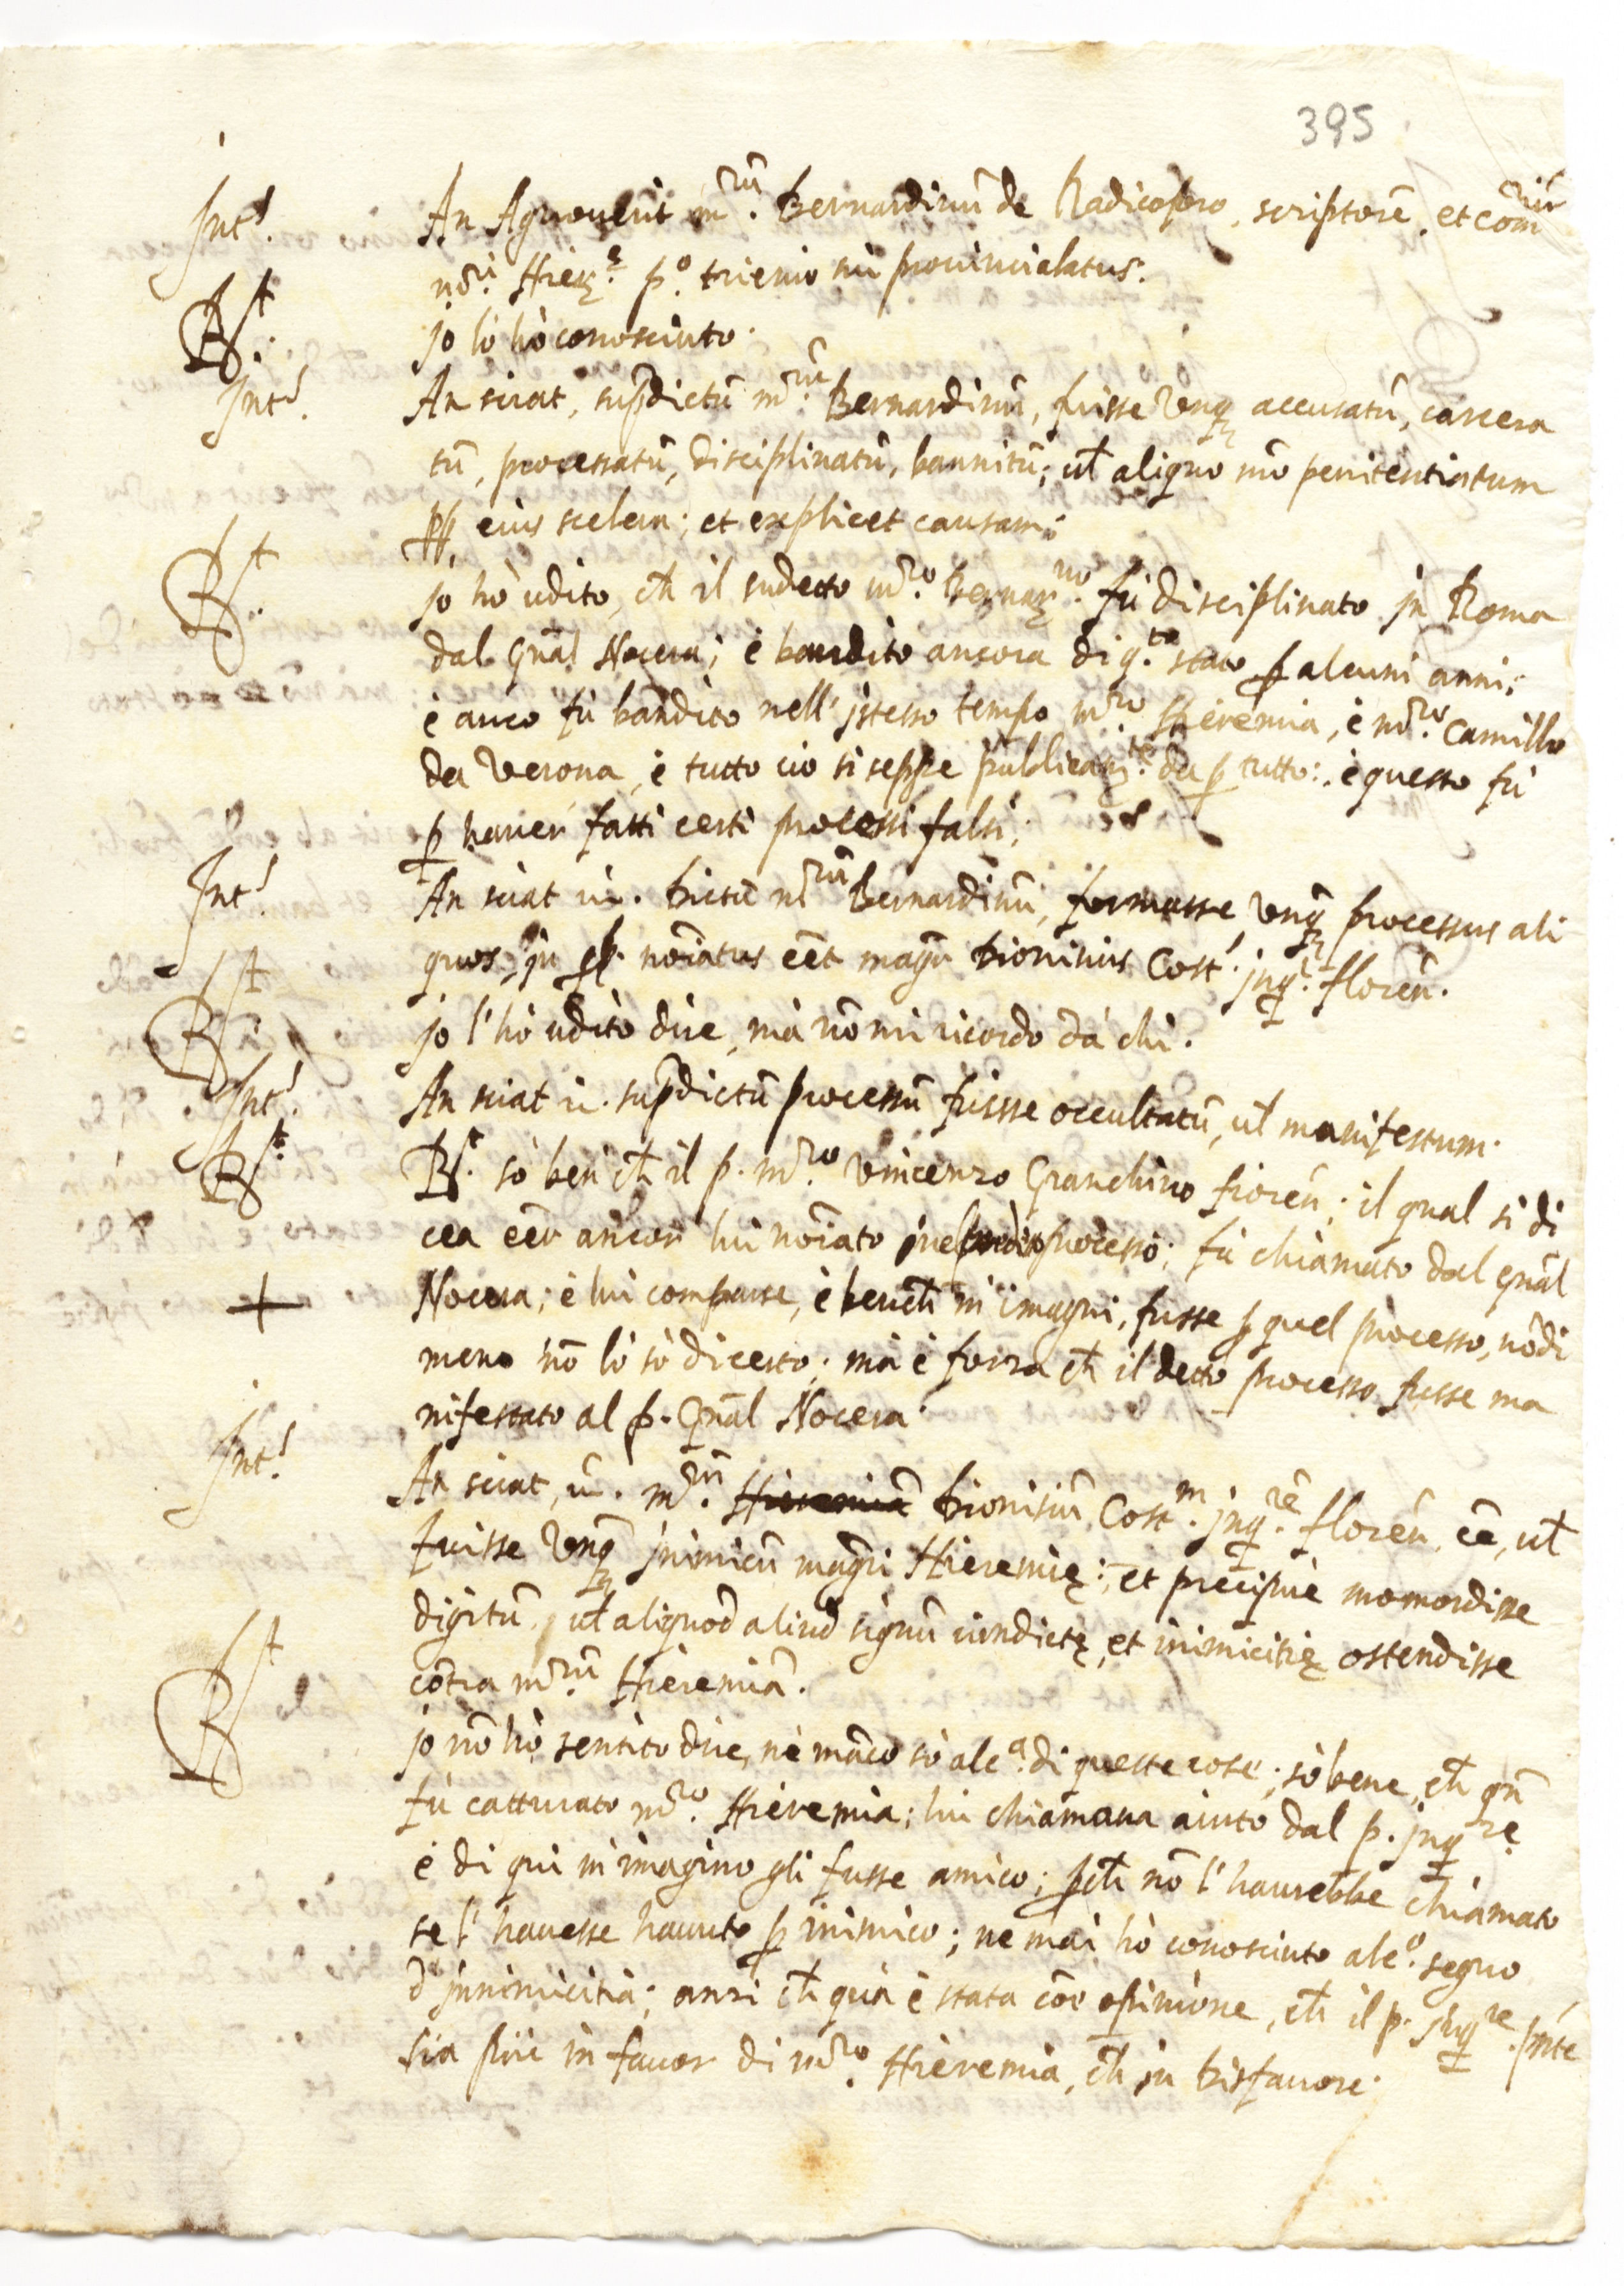 395
Int.s An Agnouerit m.rũ Bernardinũ de Radicofero, scriptorẽ, et com.riũ
m.ri Hier.e p.o trienio sui prouincialatus.
R.t jo lo hò conosciuto.
Int.s An sciat, sup̃dictũ m.rũ Bernardinũ, fuisse vnq̃ accusatũ, carcera
tũ, processatũ, disciplinatũ, bannitũ; ul̃ aliquo mõ penitentiatum
pp̃ eius scelera; et explicet causam;
R.t jo hò udito, ch̃ il sudetto m.ro Bernar.no fù disciplinato jn Roma
dal Gñal Nocera; è bandito ancora di q.to stato p̱ alcuni anni;
è anco fù bandito nell' jstesso tempo m.ro Hieremia, è m.ro Camillo
da Verona, è tutto ciò si seppe publicam.te da p̱ tutto: è questo fù
p̱ hauer fatti certi processi falsi;
Int.s An sciat ũ. dictũ m.rũ Bernardinũ, formasse vnq̃ processus ali
quos, jn q̃b. noĩatus eẽt mag̃r Dionisius Cost. jnq.r florẽn.
R.t jo l'hò udito dire, mà nõ mi ricordo dà chi.
Int.s An sciat ũ. sup̃dictũ processũ fuisse occultatũ, ul̃ manifestum.
R.t R.t sò ben ch̃ il p. m.ro Vincenzo Granchino fiorẽn; il qual si di
cea eẽr ancor lui noĩato processo; fù chiamato dal gñal
+ Nocera; è lui comparse, è bench̃ m'imagini, fusse p̱ quel processo, nõdi
meno nõ lo sò di certo; mà è forza ch̃ il detto processo fusse ma
nifestato al p. Gñal Nocera.
Int.s An sciat, ũ. m.rũ Hieremiã Dionisiũ Cost.m jnq.rẽ florẽn, eẽ, ul̃
fuisse vnq̃ jnimicũ mag̃ri Hieremię; et precipuè momordisse
digitũ, ul̃ aliquod aliud signũ uindictę, et inimicitię ostendisse
cõtra m.rũ Hieremiã.
R.t jo nõ hò sentito dire, nè mãco sò alc.a di queste cose; sò bene, ch̃ qñ
fù catturato m.ro Hieremia; lui chiamaua aiuto dal p. jnq.re
è di qui m'imagino gli fusse amico; p̱ch̃ nõ l'haurebbe chiamato
se l'hauesse hauuto p̱ inimico; ne mai hò conosciuto alc.o segno
d'jnimicitia; anzi ch̃ quà è stata coẽ opinione, ch̃ il p. jnq.re p̃nte
sia più in fauor di m.ro Hieremia, ch̃ jn disfauore.